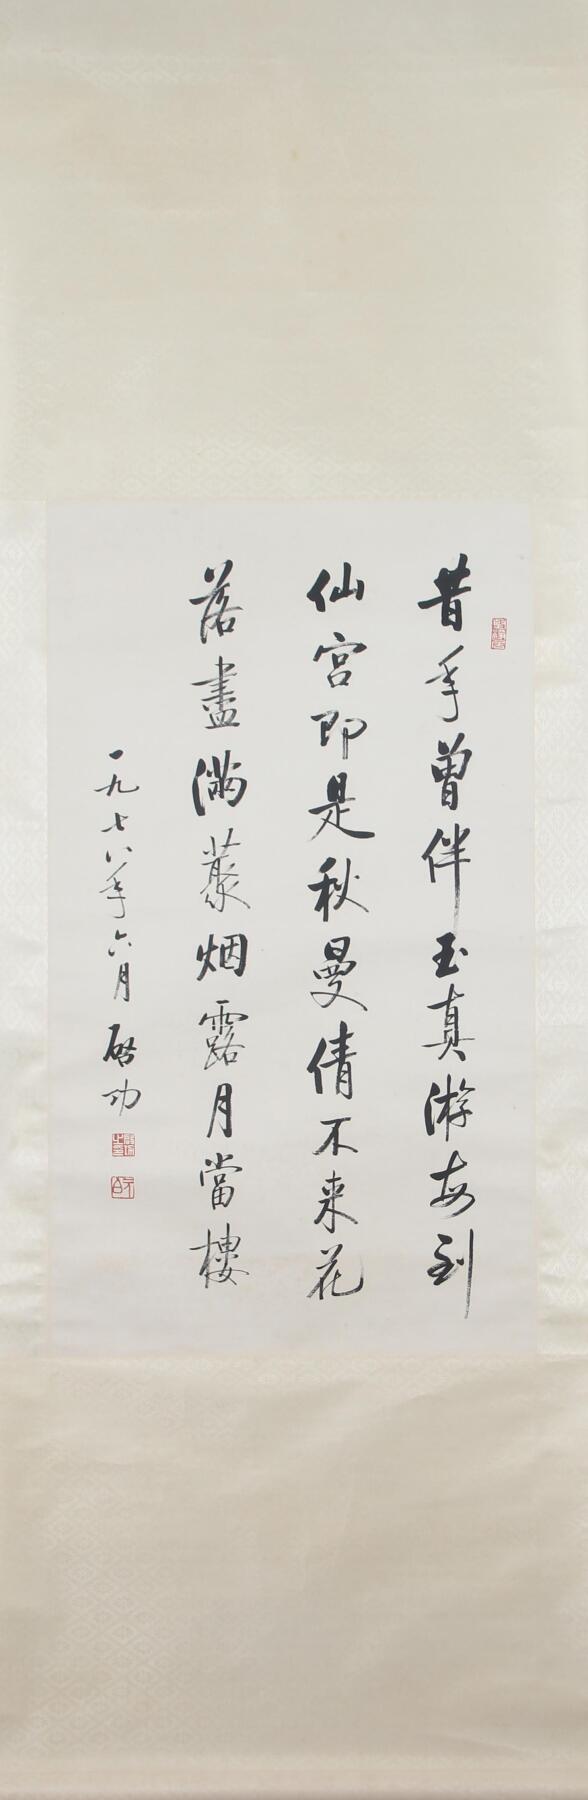 昔年曾伴玉真游每到
仙宮即是秋曼倩不来花
落盡滿藂烟露月當樓
一九七八年六月 啓功